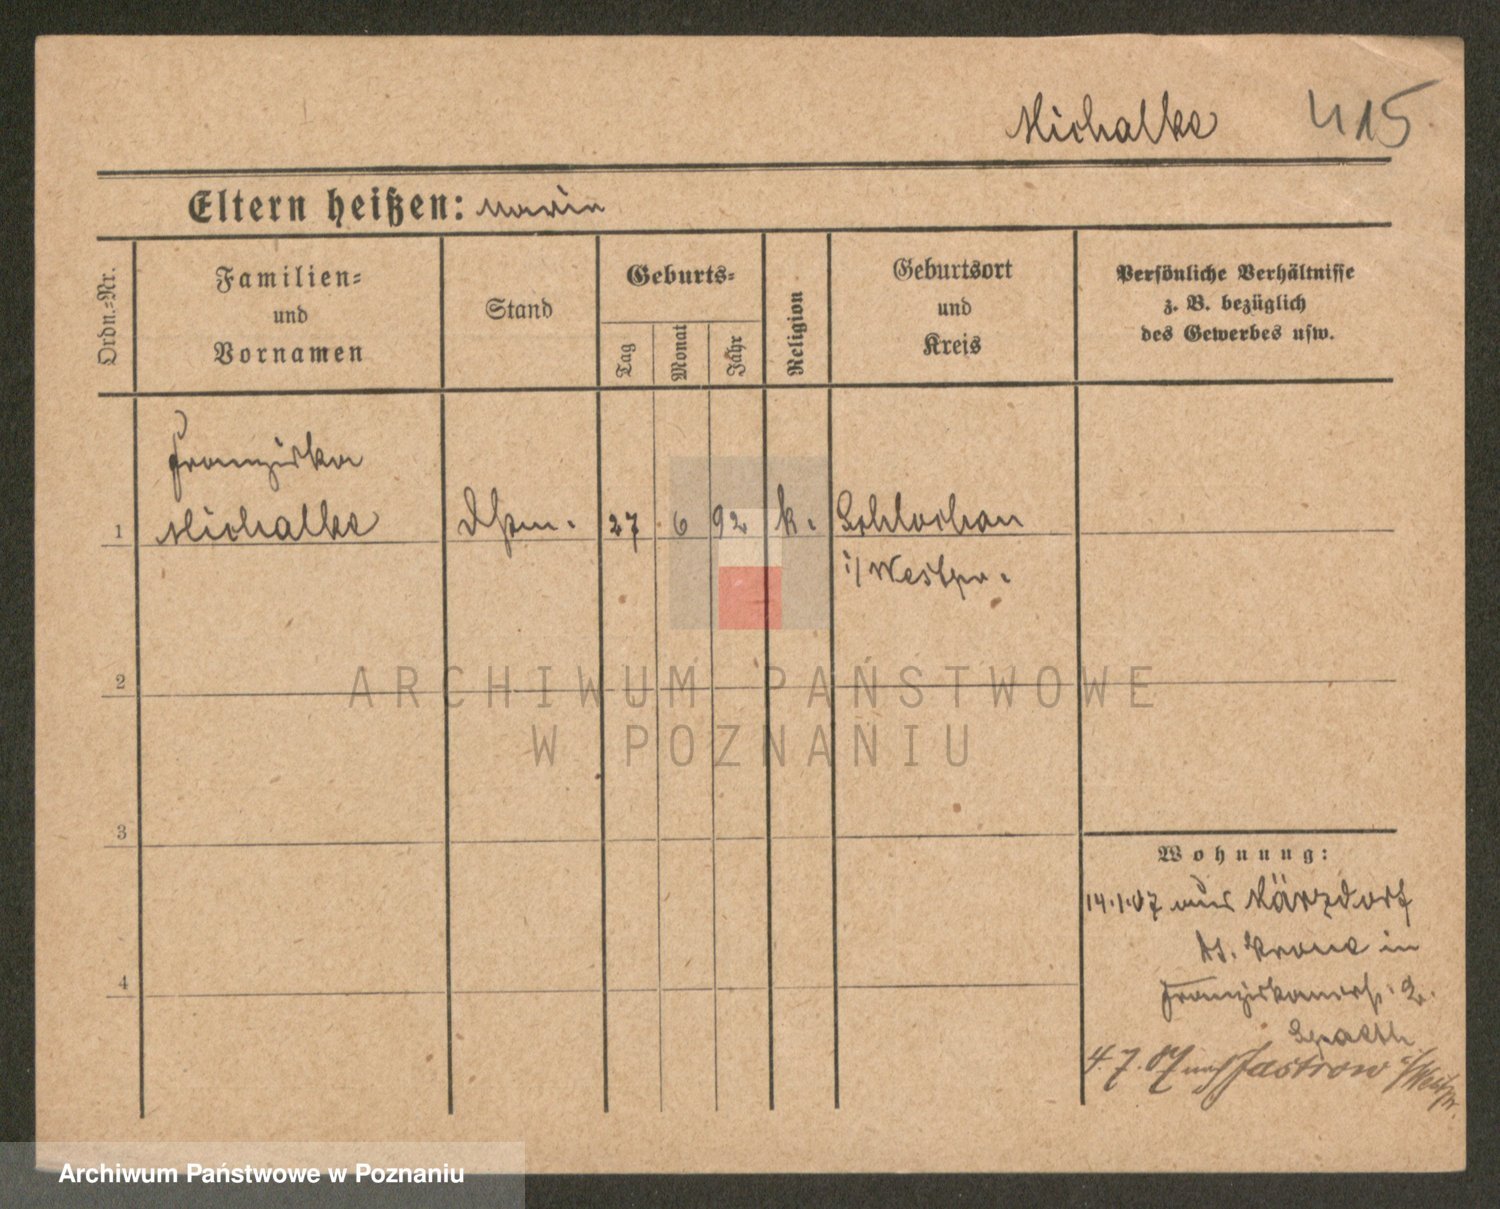 Michalke 415
Eltern heißen: Marie
Ordn.=Nr.
Familien=
und
Vornamen
Stand
Geburts=
Tag
Monat
Jahr
Religion
Geburtsort
und
Kreis
Persönliche Verhältnisse
z. B. bezüglich
des Gewerbes usw.
Franziska
1 Michalke 27 6 92 k. Schlochau
i/Westpr.
2
3
4
Wohnung:
14.1.07 aus Kärzdorf
Dt. Krone in
Franziskanerstr. 2.
Spaeth
4.7.07 nach Jastrow i/Westpr.
ARCHIWUM PAŃSTWOWE
W POZNANIU
Archiwum Państwowe w Poznaniu